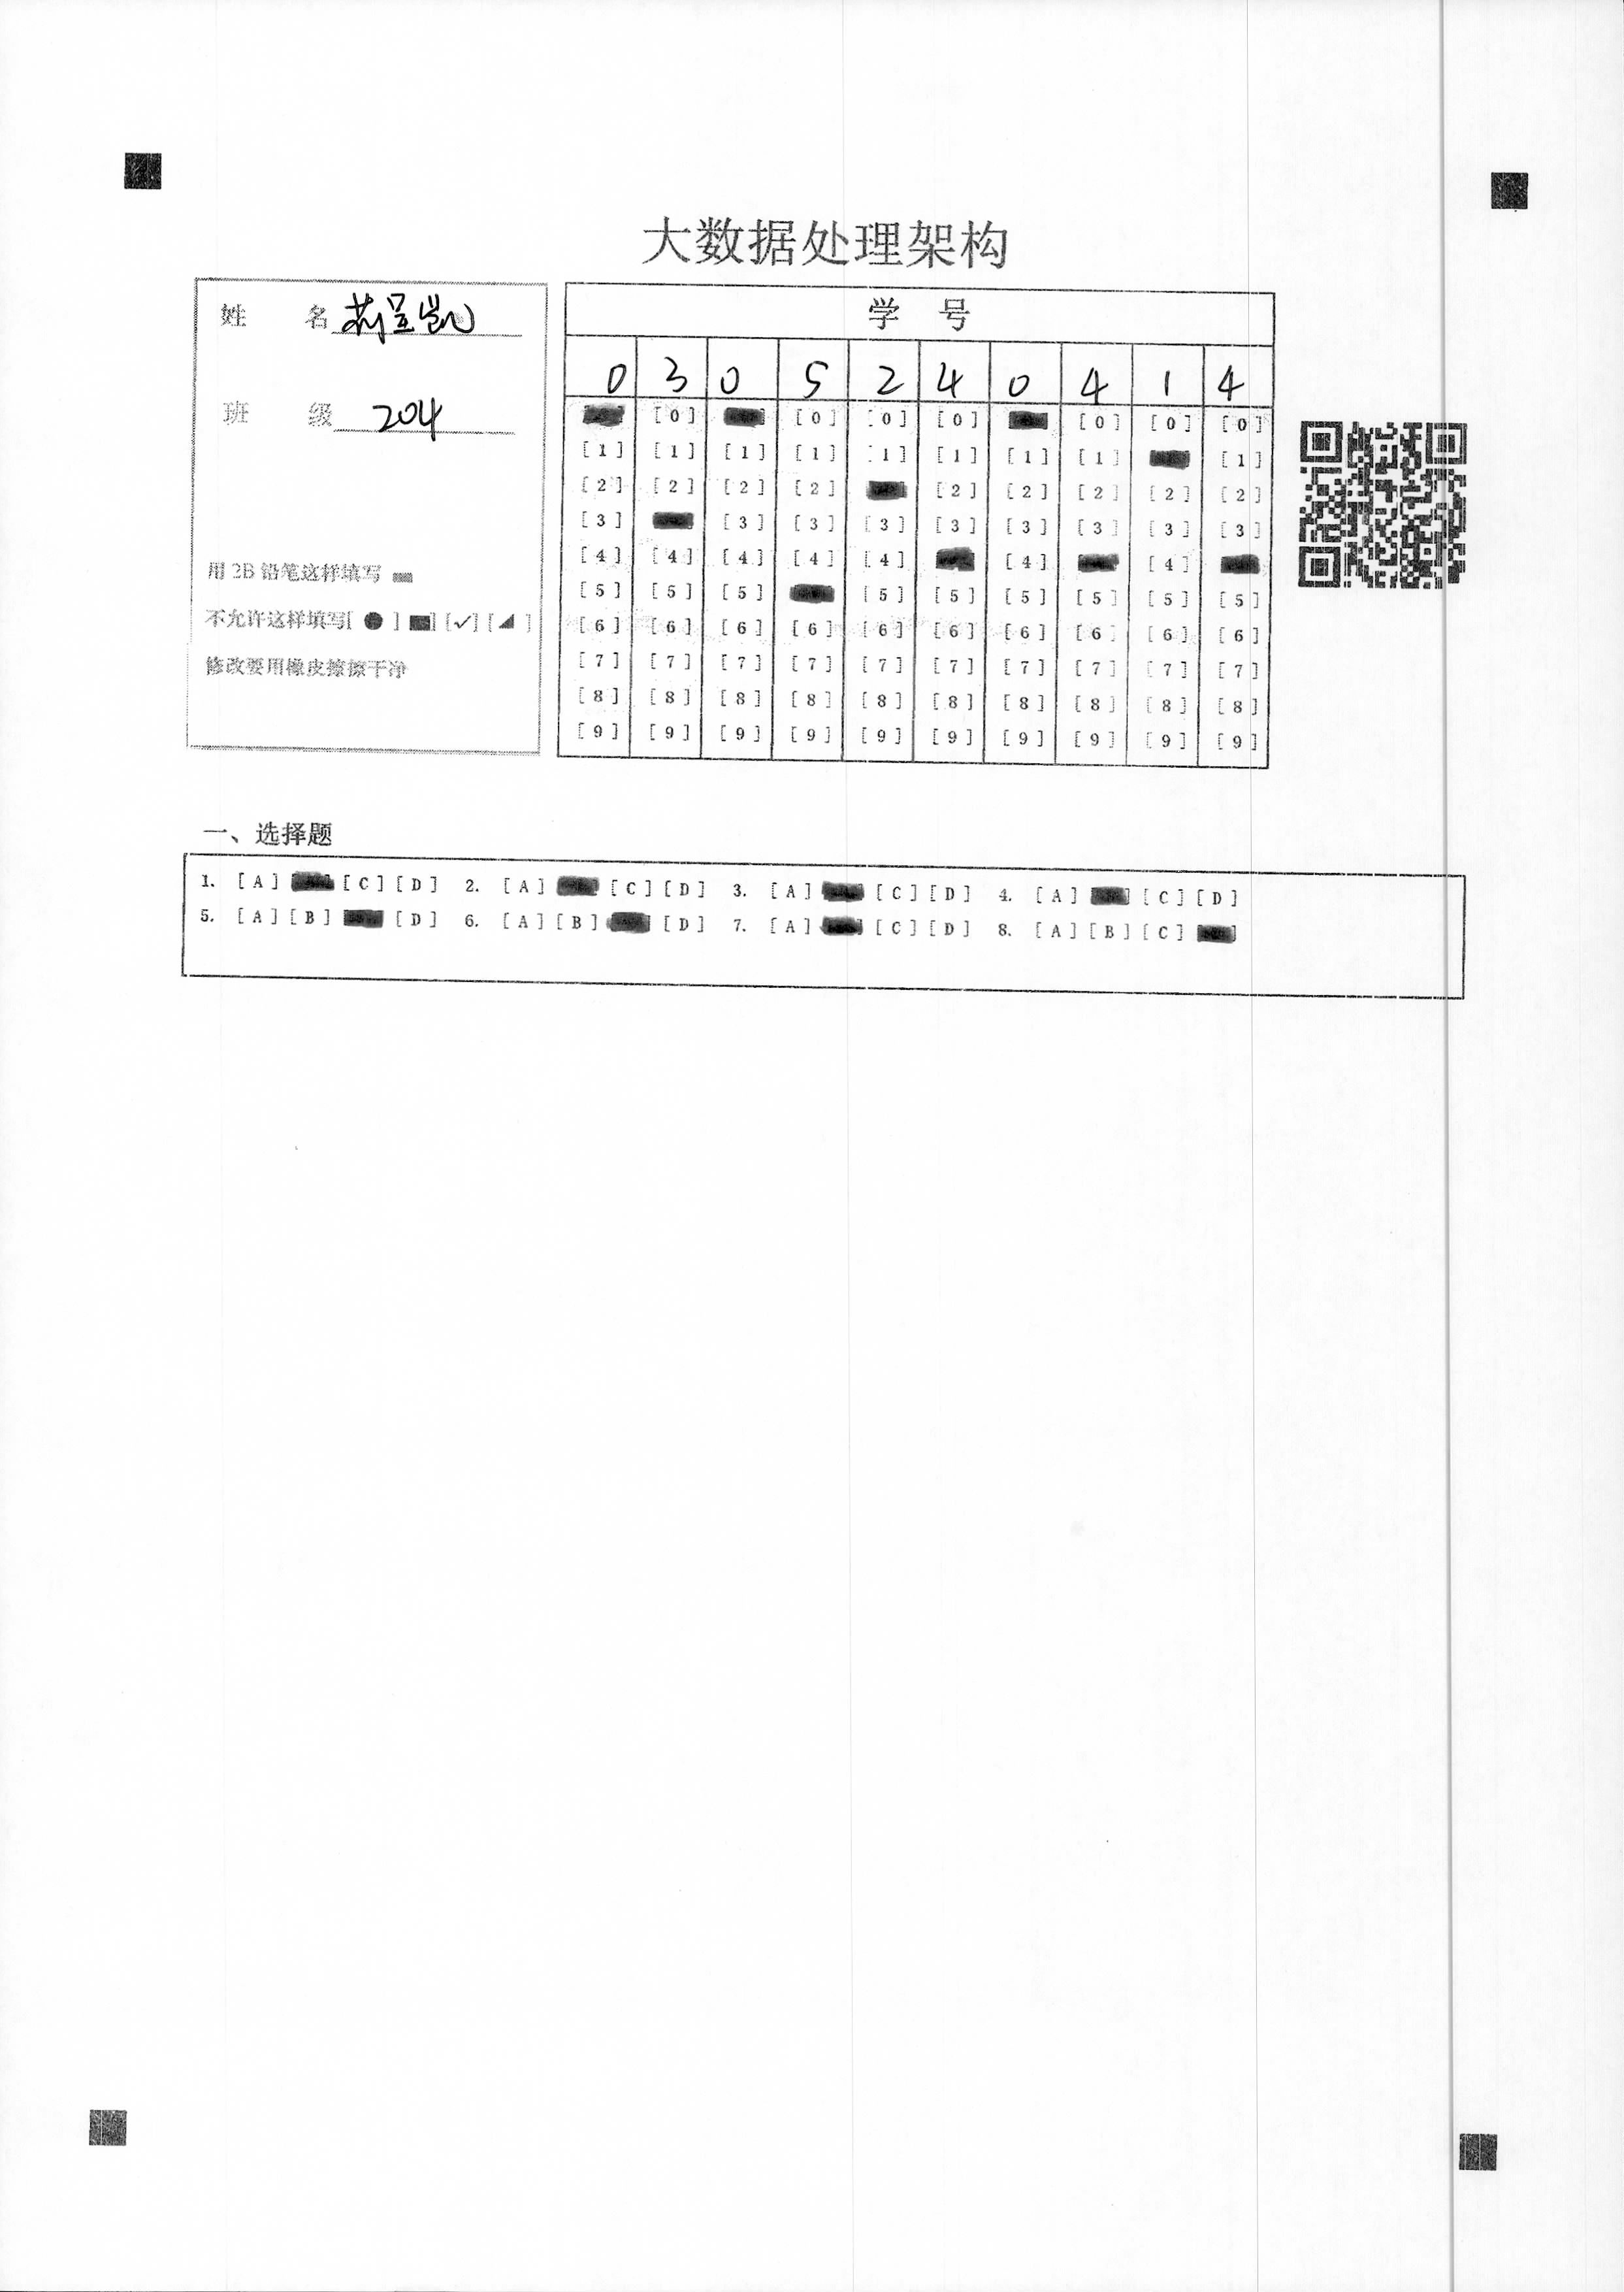 大数据处理架构
姓 名 呈凯
班 级 204
用 2B 铅笔这样填写
不允许这样填写[ ● ] [■] [✓] [◢ ]
修改要用橡皮擦擦干净
学 号
0 3 0 5 2 4 0 4 1 4
[0] [0] [0] [0] [0] [0] [0]
[1] [1] [1] [1] [1] [1] [1] [1] [1]
[2] [2] [2] [2] [2] [2] [2] [2] [2]
[3] [3] [3] [3] [3] [3] [3] [3] [3]
[4] [4] [4] [4] [4] [4] [4]
[5] [5] [5] [5] [5] [5] [5] [5] [5]
[6] [6] [6] [6] [6] [6] [6] [6] [6] [6]
[7] [7] [7] [7] [7] [7] [7] [7] [7] [7]
[8] [8] [8] [8] [8] [8] [8] [8] [8] [8]
[9] [9] [9] [9] [9] [9] [9] [9] [9] [9]
一、选择题
1. [A] [C] [D] 2. [A] [C] [D] 3. [A] [C] [D] 4. [A] [C] [D]
5. [A] [B] [D] 6. [A] [B] [D] 7. [A] [C] [D] 8. [A] [B] [C]